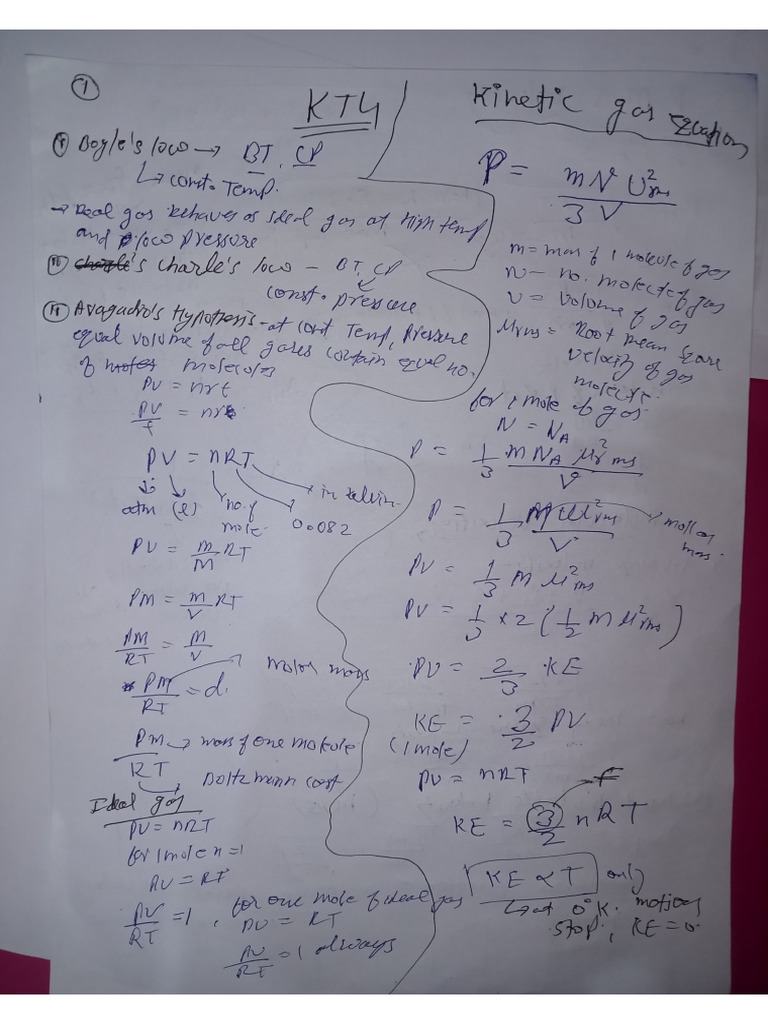 ①
KTG
(i) Boyle's law → BT, CP
↳ const. Temp.
→ Real gas behaves as ideal gas at High temp
and low pressure
(ii) 's Charle's law – BT, CP
const. pressure
(iii) Avagadro's Hypothesis - at const Temp, Pressure
equal volume of all gases contain equal no.
of molecules
PV = nrt
PV/t = nr
PV = nRT
atm (l) no. of mole 0.082 in kelvin
PV = m/M RT
PM = m/V RT
PM/RT = m/V
* PM/RT = d. molar mass
Pm/RT → mass of one molecule
Boltzmann const
Ideal gas
PV = nRT
for 1 mole n = 1
PV = RT
PV/RT = 1, for one mole of ideal gas
PV = RT
PV/RT = 1 always
Kinetic gas Equation
P = mNU²rms / 3V
m = mass of 1 molecule of gas
N – no. molecule of gas
V = Volume of gas
Urms = Root mean square
velocity of gas
molecule.
for 1 mole of gas
N = NA
P = 1/3 mNA U²rms / V
P = 1/3 M U²rms / V → molar mass
PV = 1/3 M U²rms
PV = 1/3 × 2 (1/2 M U²rms)
PV = 2/3 KE
KE = 3/2 PV
(1 mole)
PV = nRT
KE = 3/2 nRT → f
KE ∝ T only
↳ at 0°K. motions
stop, KE = 0.